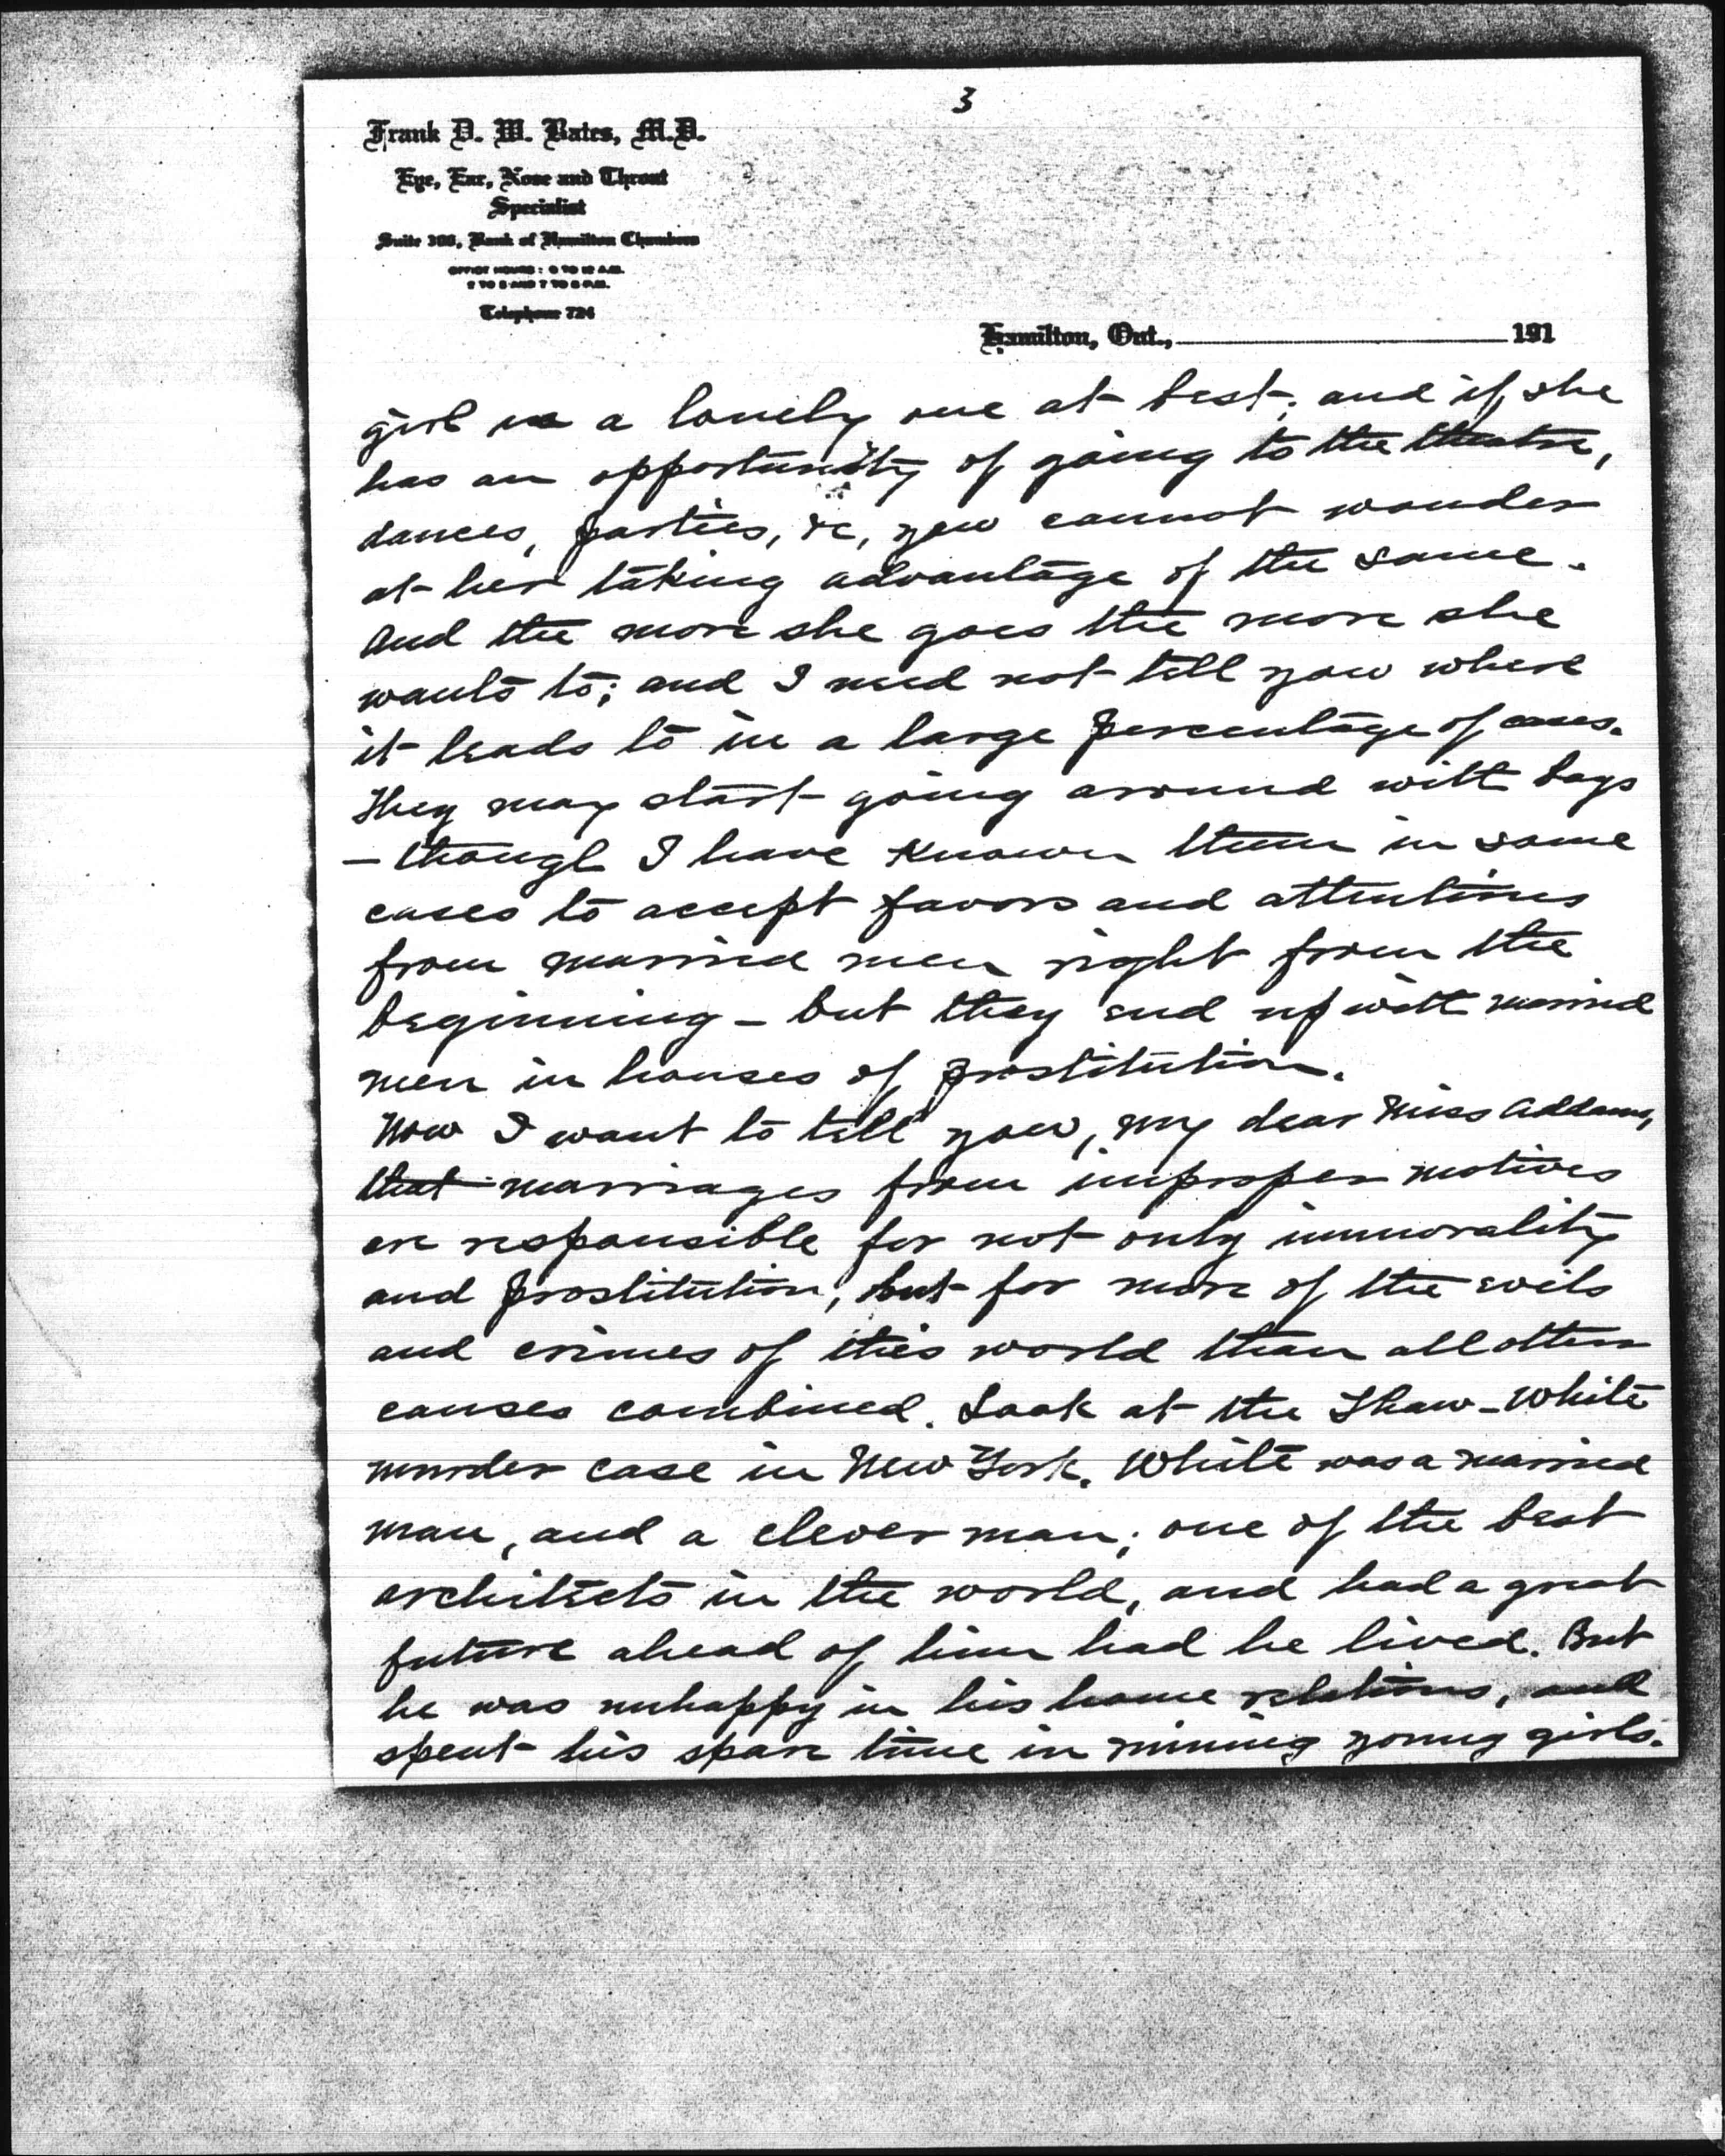 3
Frank D. W. Bates, M.D.
Eye, Ear, Nose and Throat
Specialist
Suite 300, Bank of Hamilton Chambers
OFFICE HOURS: 9 TO 12 A.M.
2 TO 5 AND 7 TO 8 P.M.
Telephone 724
Hamilton, Ont., 191
girl is a lonely one at best; and if she
has an opportunity of going to the theatre,
dances, parties, &c, you cannot wonder
at her taking advantage of the same.
And the more she goes the more she
wants to; and I need not tell you where
it leads to in a large percentage of cases.
They may start going around with boys
— though I have known them in some
cases to accept favors and attentions
from married men right from the
beginning — but they end up with married
men in houses of prostitution.
Now I want to tell you, my dear Miss Addams,
that marriages from improper motives
are responsible for not only immorality
and prostitution, but for more of the evils
and crimes of this world than all other
causes combined. Look at the Thaw-White
murder case in New York. White was a married
man, and a clever man; one of the best
architects in the world, and had a great
future ahead of him had he lived. But
he was unhappy in his home relations, and
spent his spare time in ruining young girls.